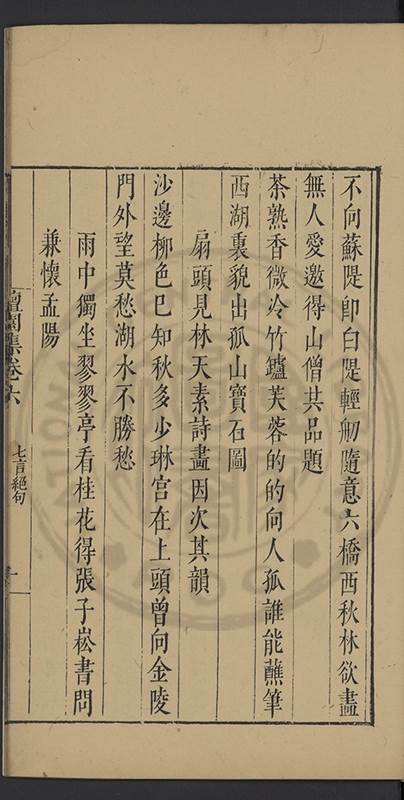 不向蘇隄卽白隄輕舠隨意六橋西秋林欲畫
無人愛邀得山僧共品題
茶熟香微冷竹鑪芙蓉的的向人孤誰能蘸筆
西湖裏貌出孤山寶石圖
扇頭見林天素詩畫因次其韻
沙邊柳色已知秋多少琳宮在上頭曾向金陵
門外望莫愁湖水不勝愁
雨中獨坐翏翏亭看桂花得張子崧書問
兼懷孟陽
集卷六
七言絕句